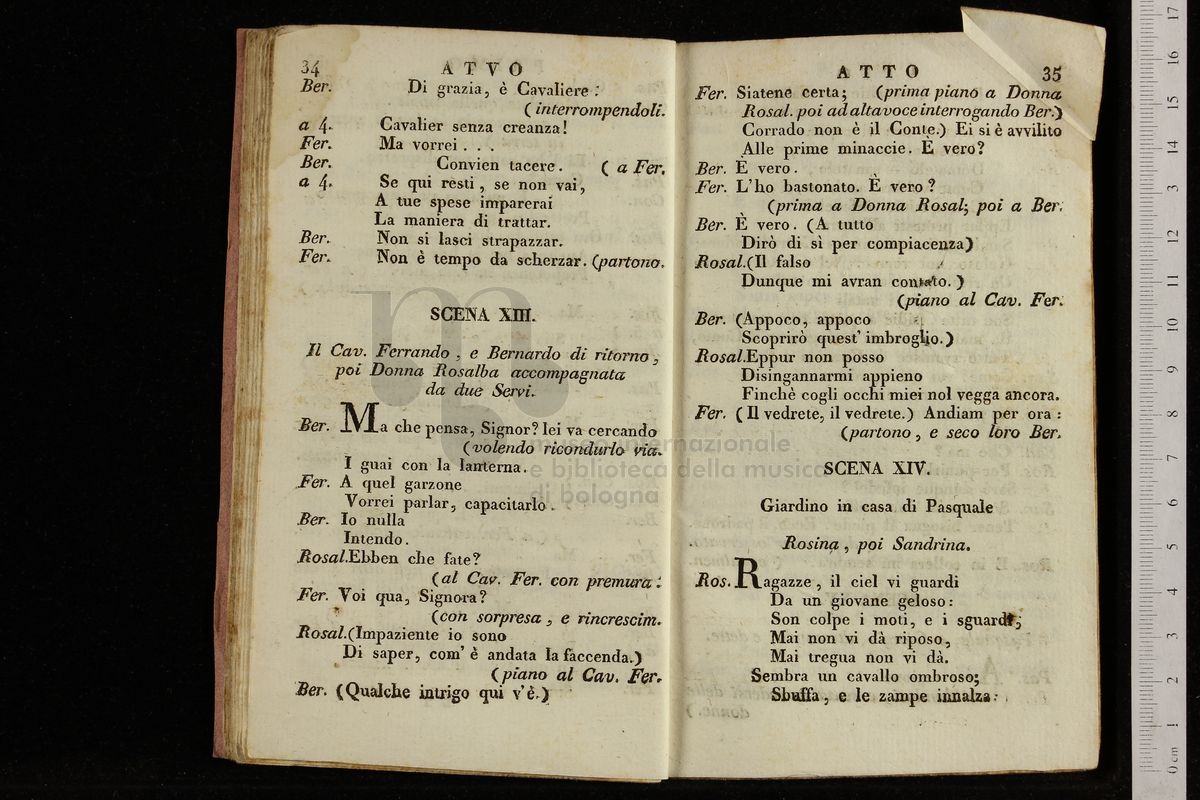 34 ATVO
Ber. Di grazia, è Cavaliere:
(interrompendoli.
a 4. Cavalier senza creanza!
Fer. Ma vorrei . . .
Ber. Convien tacere. (a Fer.
a 4. Se qui resti, se non vai,
A tue spese imparerai
La maniera di trattar.
Ber. Non si lasci strapazzar.
Fer. Non è tempo da scherzar. (partono.
SCENA XIII.
Il Cav. Ferrando, e Bernardo di ritorno,
poi Donna Rosalba accompagnata
da due Servi.
Ber. Ma che pensa, Signor? lei va cercando
(volendo ricondurlo via.
I guai con la lanterna.
Fer. A quel garzone
Vorrei parlar, capacitarlo.
Ber. Io nulla
Intendo.
Rosal. Ebben che fate?
(al Cav. Fer. con premura:
Fer. Voi qua, Signora?
(con sorpresa, e rincrescim.
Rosal. (Impaziente io sono
Di saper, com' è andata la faccenda.)
(piano al Cav. Fer.
Ber. (Qualche intrigo qui v'è.)
ATTO 35
Fer. Siatene certa; (prima piano a Donna
Rosal. poi ad alta voce interrogando Ber.)
Corrado non è il Conte.) Ei si è avvilito
Alle prime minaccie. È vero?
Ber. È vero.
Fer. L'ho bastonato. È vero?
(prima a Donna Rosal; poi a Ber.
Ber. È vero. (A tutto
Dirò di sì per compiacenza)
Rosal. (Il falso
Dunque mi avran contato.)
(piano al Cav. Fer.
Ber. (Appoco, appoco
Scoprirò quest' imbroglio.)
Rosal. Eppur non posso
Disingannarmi appieno
Finchè cogli occhi miei nol vegga ancora.
Fer. (Il vedrete, il vedrete.) Andiam per ora:
(partono, e seco loro Ber.
SCENA XIV.
Giardino in casa di Pasquale
Rosina, poi Sandrina.
Ros. Ragazze, il ciel vi guardi
Da un giovane geloso:
Son colpe i moti, e i sguardi,
Mai non vi dà riposo,
Mai tregua non vi dà.
Sembra un cavallo ombroso;
Sbuffa, e le zampe innalza:
museo internazionale
e biblioteca della musica
di bologna
0 cm 1 2 3 4 5 6 7 8 9 10 11 12 13 14 15 16 17